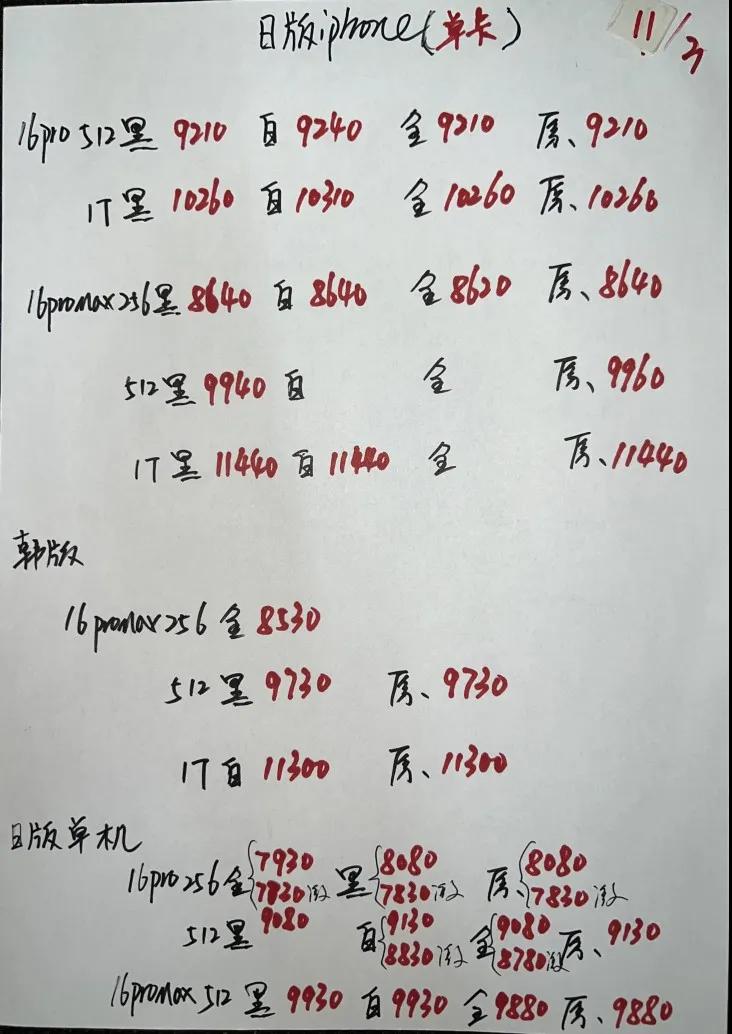 日版iphone(单卡) 11/2
16pro 512黑 9210 白 9240 金 9210 原、9210
1T黑 10260 白 10310 金 10260 原、10260
16promax256黑 8640 白 8640 金 8620 原、8640
512黑 9940 白 金 原、9960
1T黑 11440 白 11440 金 原、11440
韩版
16promax256 金 8530
512黑 9730 原、9730
1T白 11300 原、11300
日版单机
16pro256金{7930 黑{8080 原{8080
7830激 7830激 7830激
512黑 9080 白{9130 金{9080 原、9130
8830激 8780激
16promax 512 黑 9930 白 9930 金 9880 原、9880